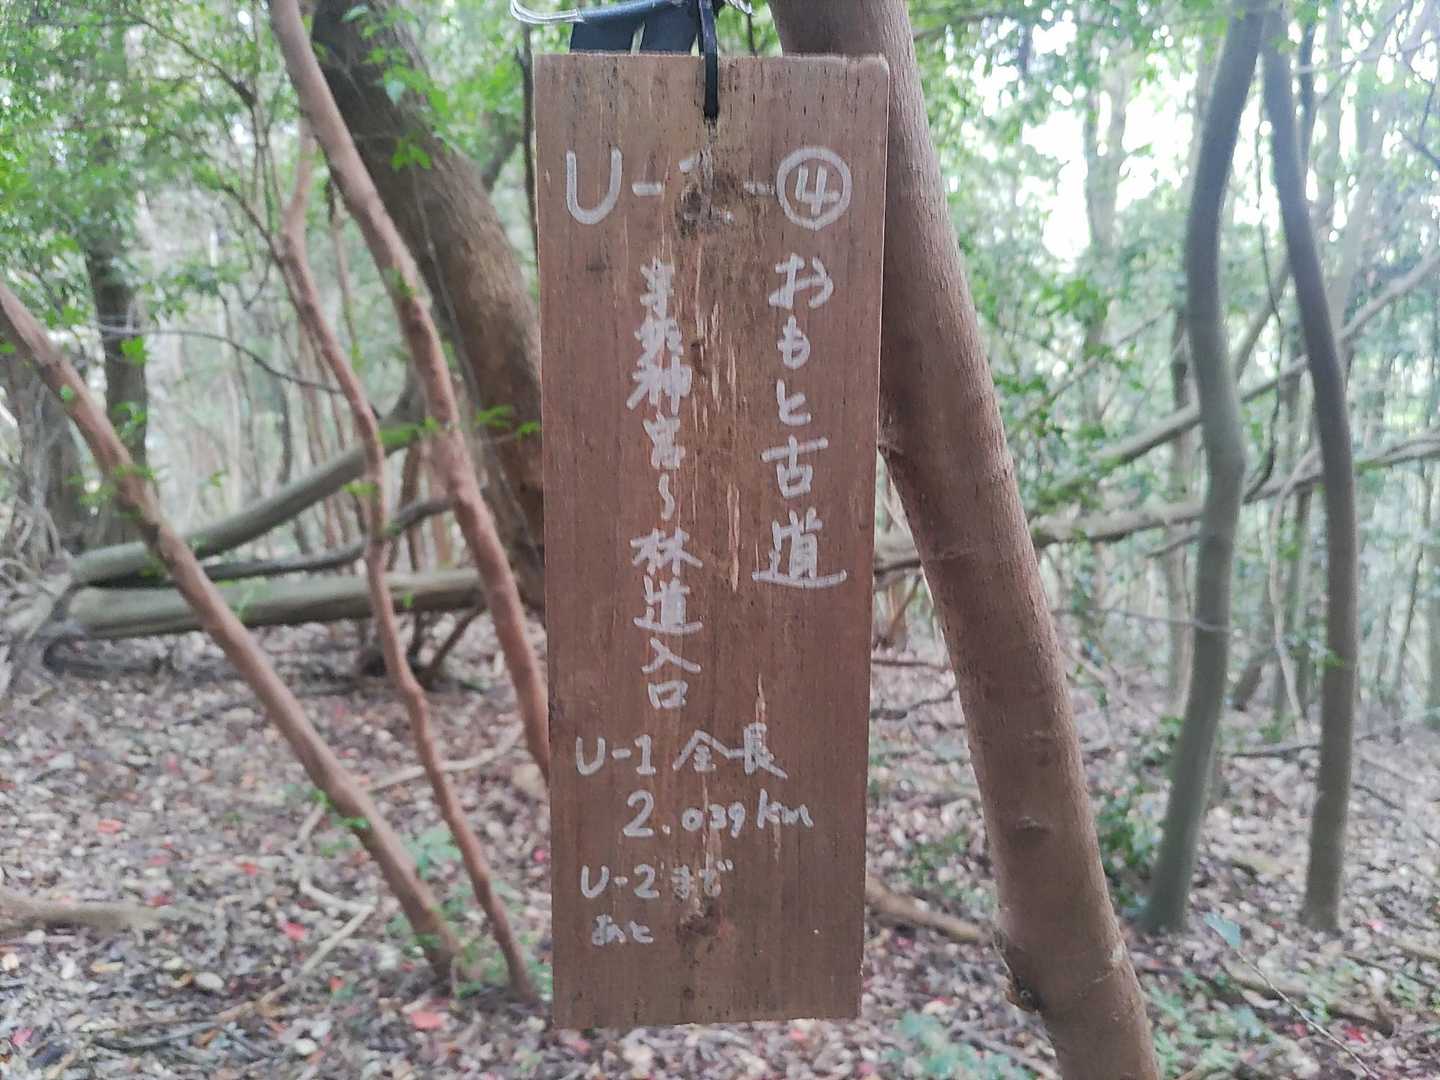 U-1-④
おもと古道
宇佐神宮～林道入口
U-1 全長
2.039km
U-2まで
あと